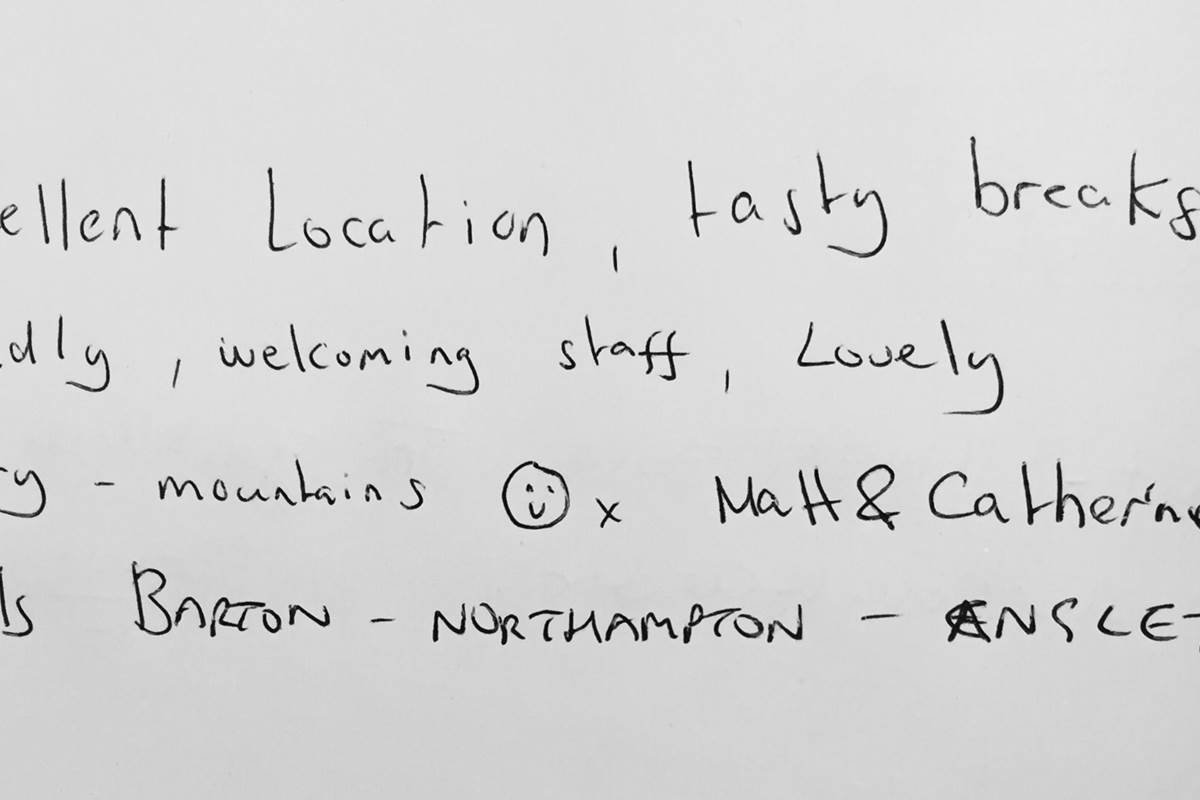 ellent Location, tasty breaks
dly, welcoming staff, Lovely
ry - mountains ☺ x Matt & Catherine
ls BARTON - NORTHAMPTON - ANSLE